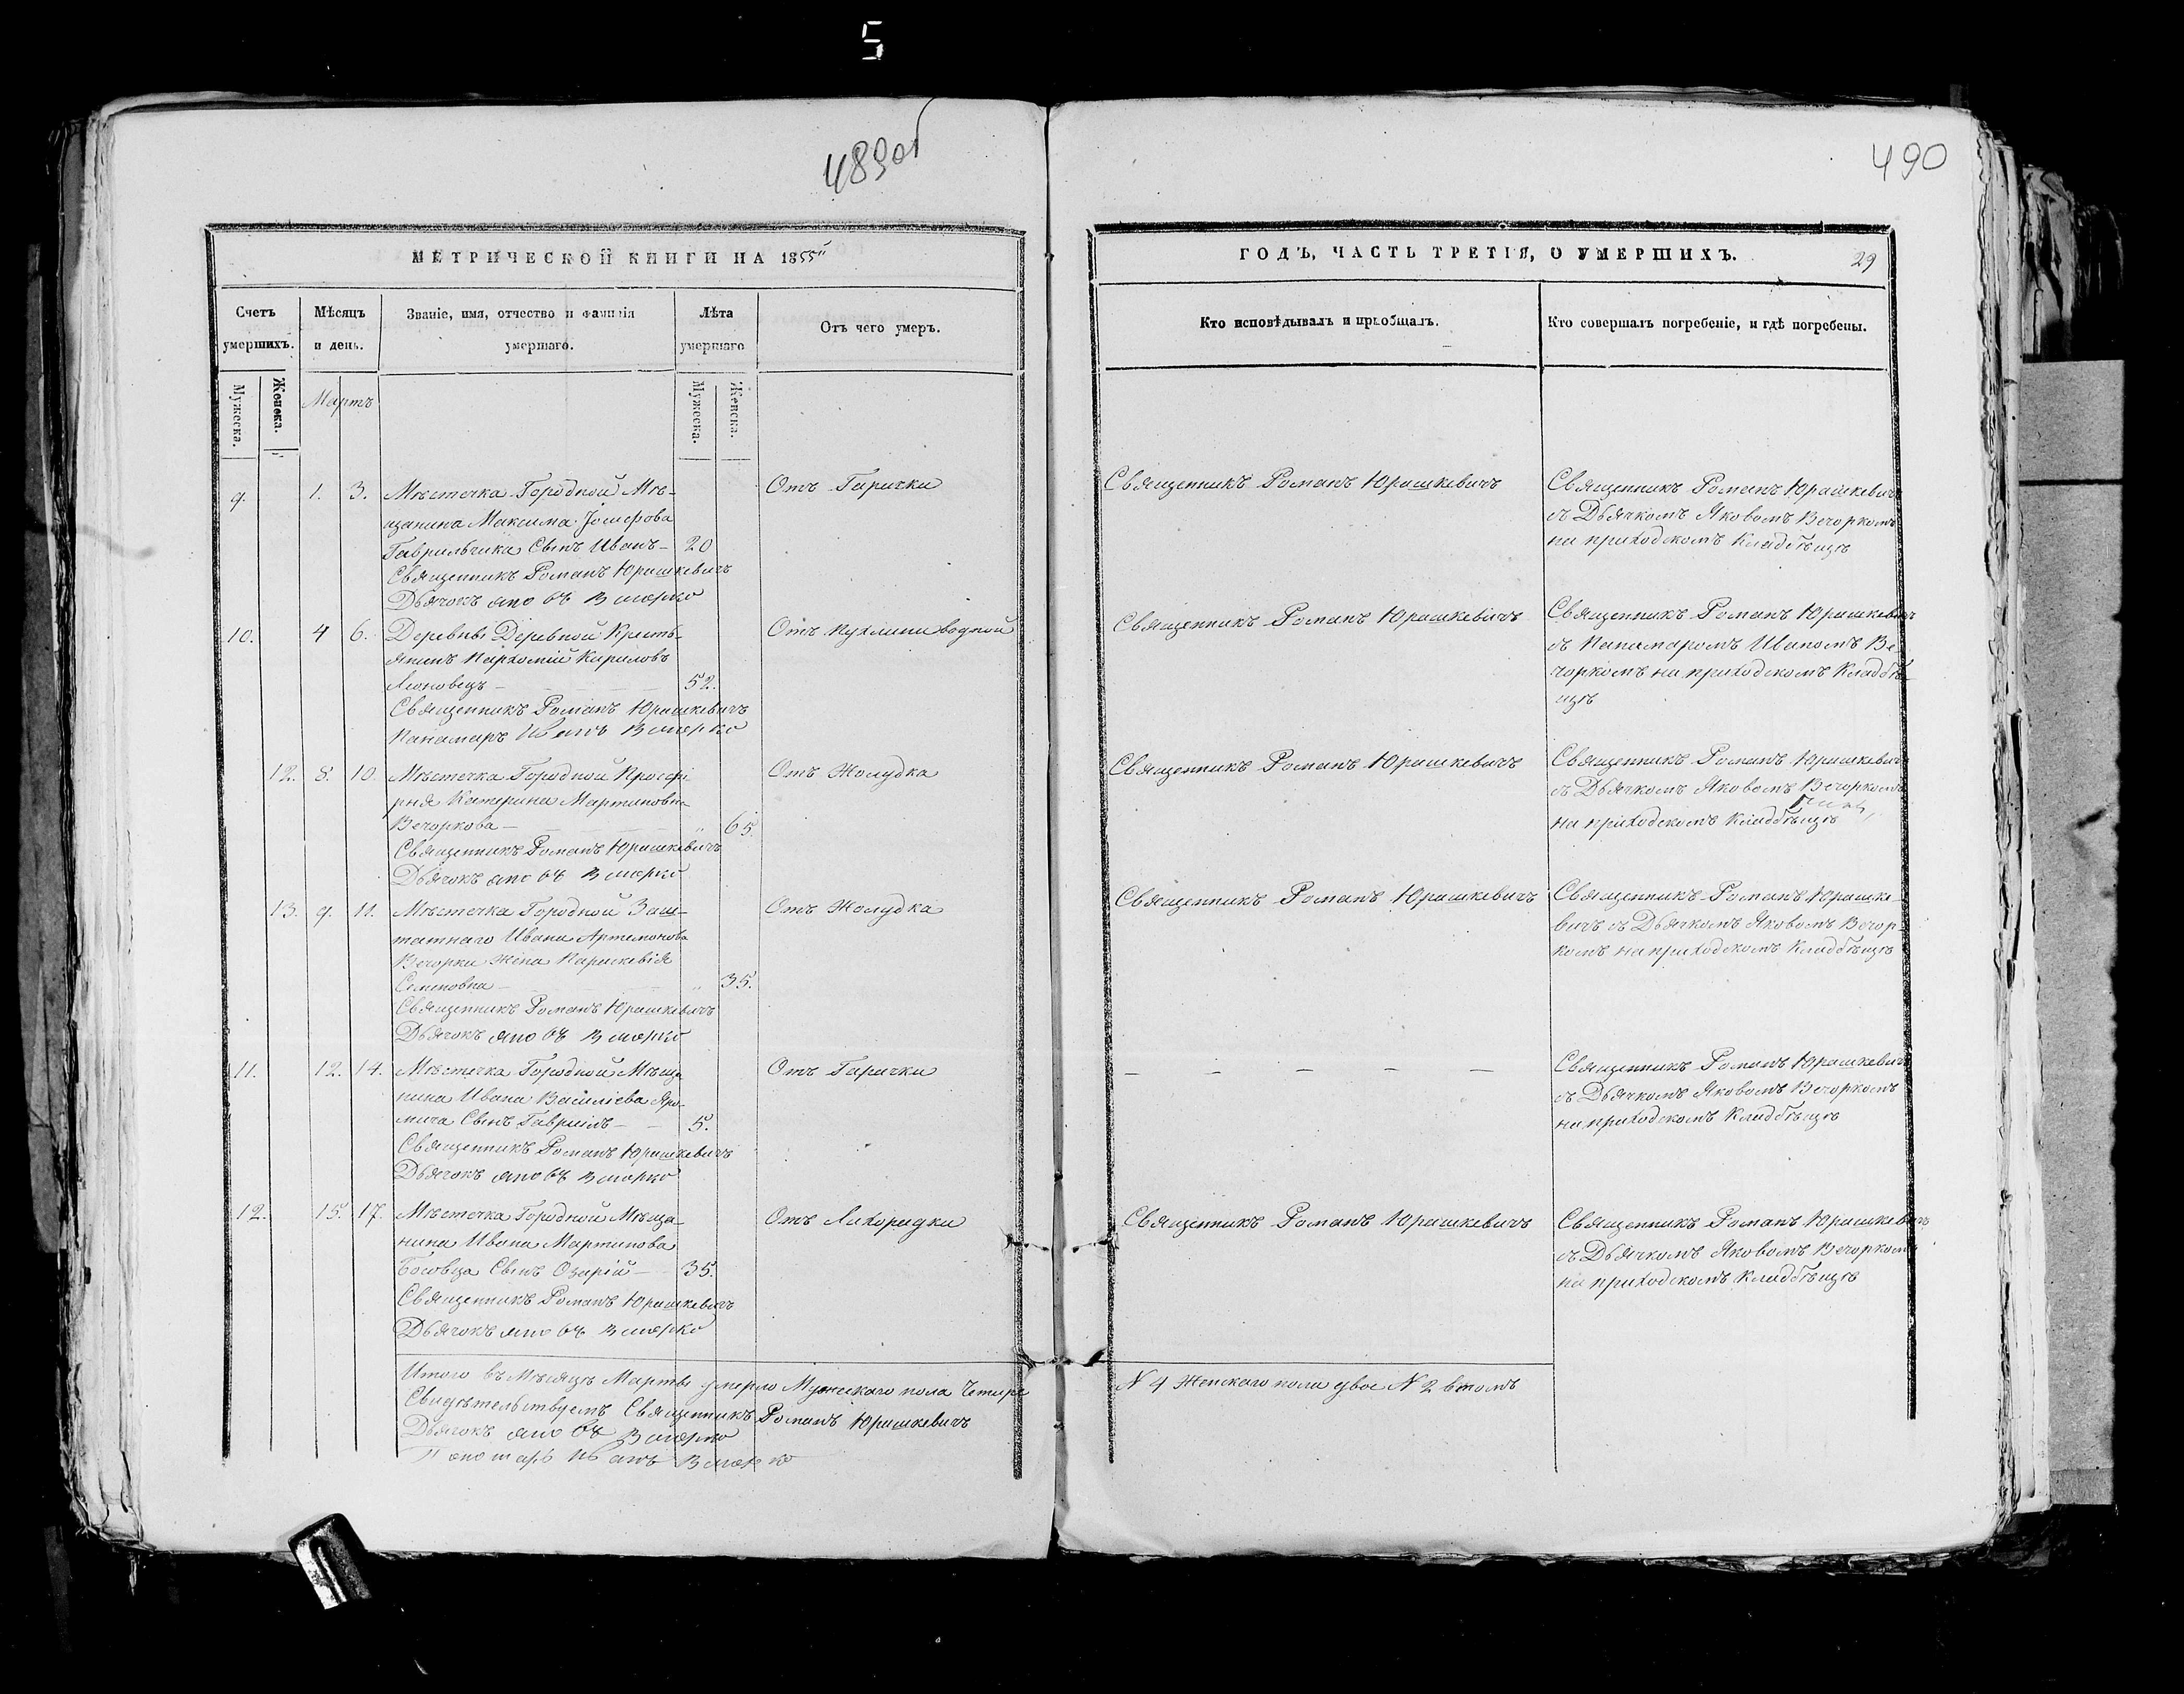 5
489об
490
МЕТРИЧЕСКОЙ КНИГИ НА 1855
Счетъ умершихъ.
Мѣсяцъ и день.
Званіе, имя, отчество и фамилія умершаго.
Лѣта умершаго
Отъ чего умеръ.
Мужеска.
Женска.
Мартъ
Мужеска.
Женска.
9. 1. 3. Мѣстечка Городной Мѣ-
щанина Максима Іосифова
Гаврильчика Сынъ Иванъ- 20
Отъ Гарички
Священникъ Романъ Юрашкевичъ
Дьячокъ Яковъ Вечорко
10. 4 6. Деревны Деревной Кресть-
янинъ Пархомій Кириловъ
52.
Отъ Пухлини водной
Священникъ Романъ Юрашкевичъ
Панамаръ Иванъ Вечорко
12. 8. 10. Мѣстечка Городной Просфі
рня Катерина Мартиновна
Вечоркова - „ 65.
Отъ Жолудка
Священникъ Романъ Юрашкевичъ
Дьячокъ Яковъ Вечорко
13. 9. 11. Мѣстечка Городной Заш-
татнаго Ивана Артемонова
Вечорки жена Параскевія
Семеновна - „ 35.
Отъ Жолудка
Священникъ Романъ Юрашкевичъ
Дьячокъ Яковъ Вечорко
11. 12. 14. Мѣстечка Городной Мѣща
нина Ивана Василіева Яро-
мича Сынъ Гавріилъ - 5.
Отъ Гарички
Священникъ Романъ Юрашкевичъ
Дьячокъ Яковъ Вечорко
12. 15. 17. Мѣстечка Городной Мѣща-
нина Ивана Мартинова
Босовца Сынъ Озарій - 35.
Отъ Лихорадки
Священникъ Романъ Юрашкевичъ
Дьячокъ Яковъ Вечорко
Итого въ Мѣсяцѣ Мартѣ умерло Мужескаго пола Четыре
Свидѣтельствуемъ Священникъ Романъ Юрашкевичъ
Дьячокъ Яковъ Вечорко
Понотарь Иванъ Вечорко
ГОДЪ, ЧАСТЬ ТРЕТІЯ, О УМЕРШИХЪ.
29
Кто исповѣдывалъ и пріобщалъ.
Кто совершалъ погребеніе, и гдѣ погребены.
Священникъ Романъ Юрашкевичъ
Священникъ Романъ Юрашкевичъ
съ Дьячкомъ Яковомъ Вечоркомъ
на приходскомъ Кладбѣщѣ
Священникъ Романъ Юрашкевичъ
Священникъ Романъ Юрашкевичъ
съ Панамаромъ Иваномъ Ве
чоркомъ на приходскомъ Кладбѣ-
щѣ
Священникъ Романъ Юрашкевичъ
Священникъ Романъ Юрашкевичъ
съ Дьячкомъ Яковомъ Вечоркомъ
на приходскомъ Кладбѣщѣ
Священникъ Романъ Юрашкевичъ
Священникъ Романъ Юрашке-
вичъ съ Дьячкомъ Яковомъ Вечор-
комъ на приходскомъ Кладбѣщѣ
- - - - -
Священникъ Романъ Юрашкевичъ
съ Дьячкомъ Яковомъ Вечоркомъ
на приходскомъ Кладбѣщѣ
Священникъ Романъ Юрашкевичъ
Священникъ Романъ Юрашкевичъ
съ Дьячкомъ Яковомъ Вечоркомъ
на приходскомъ Кладбѣщѣ
N 4 Женскаго пола двое N 2 втомъ